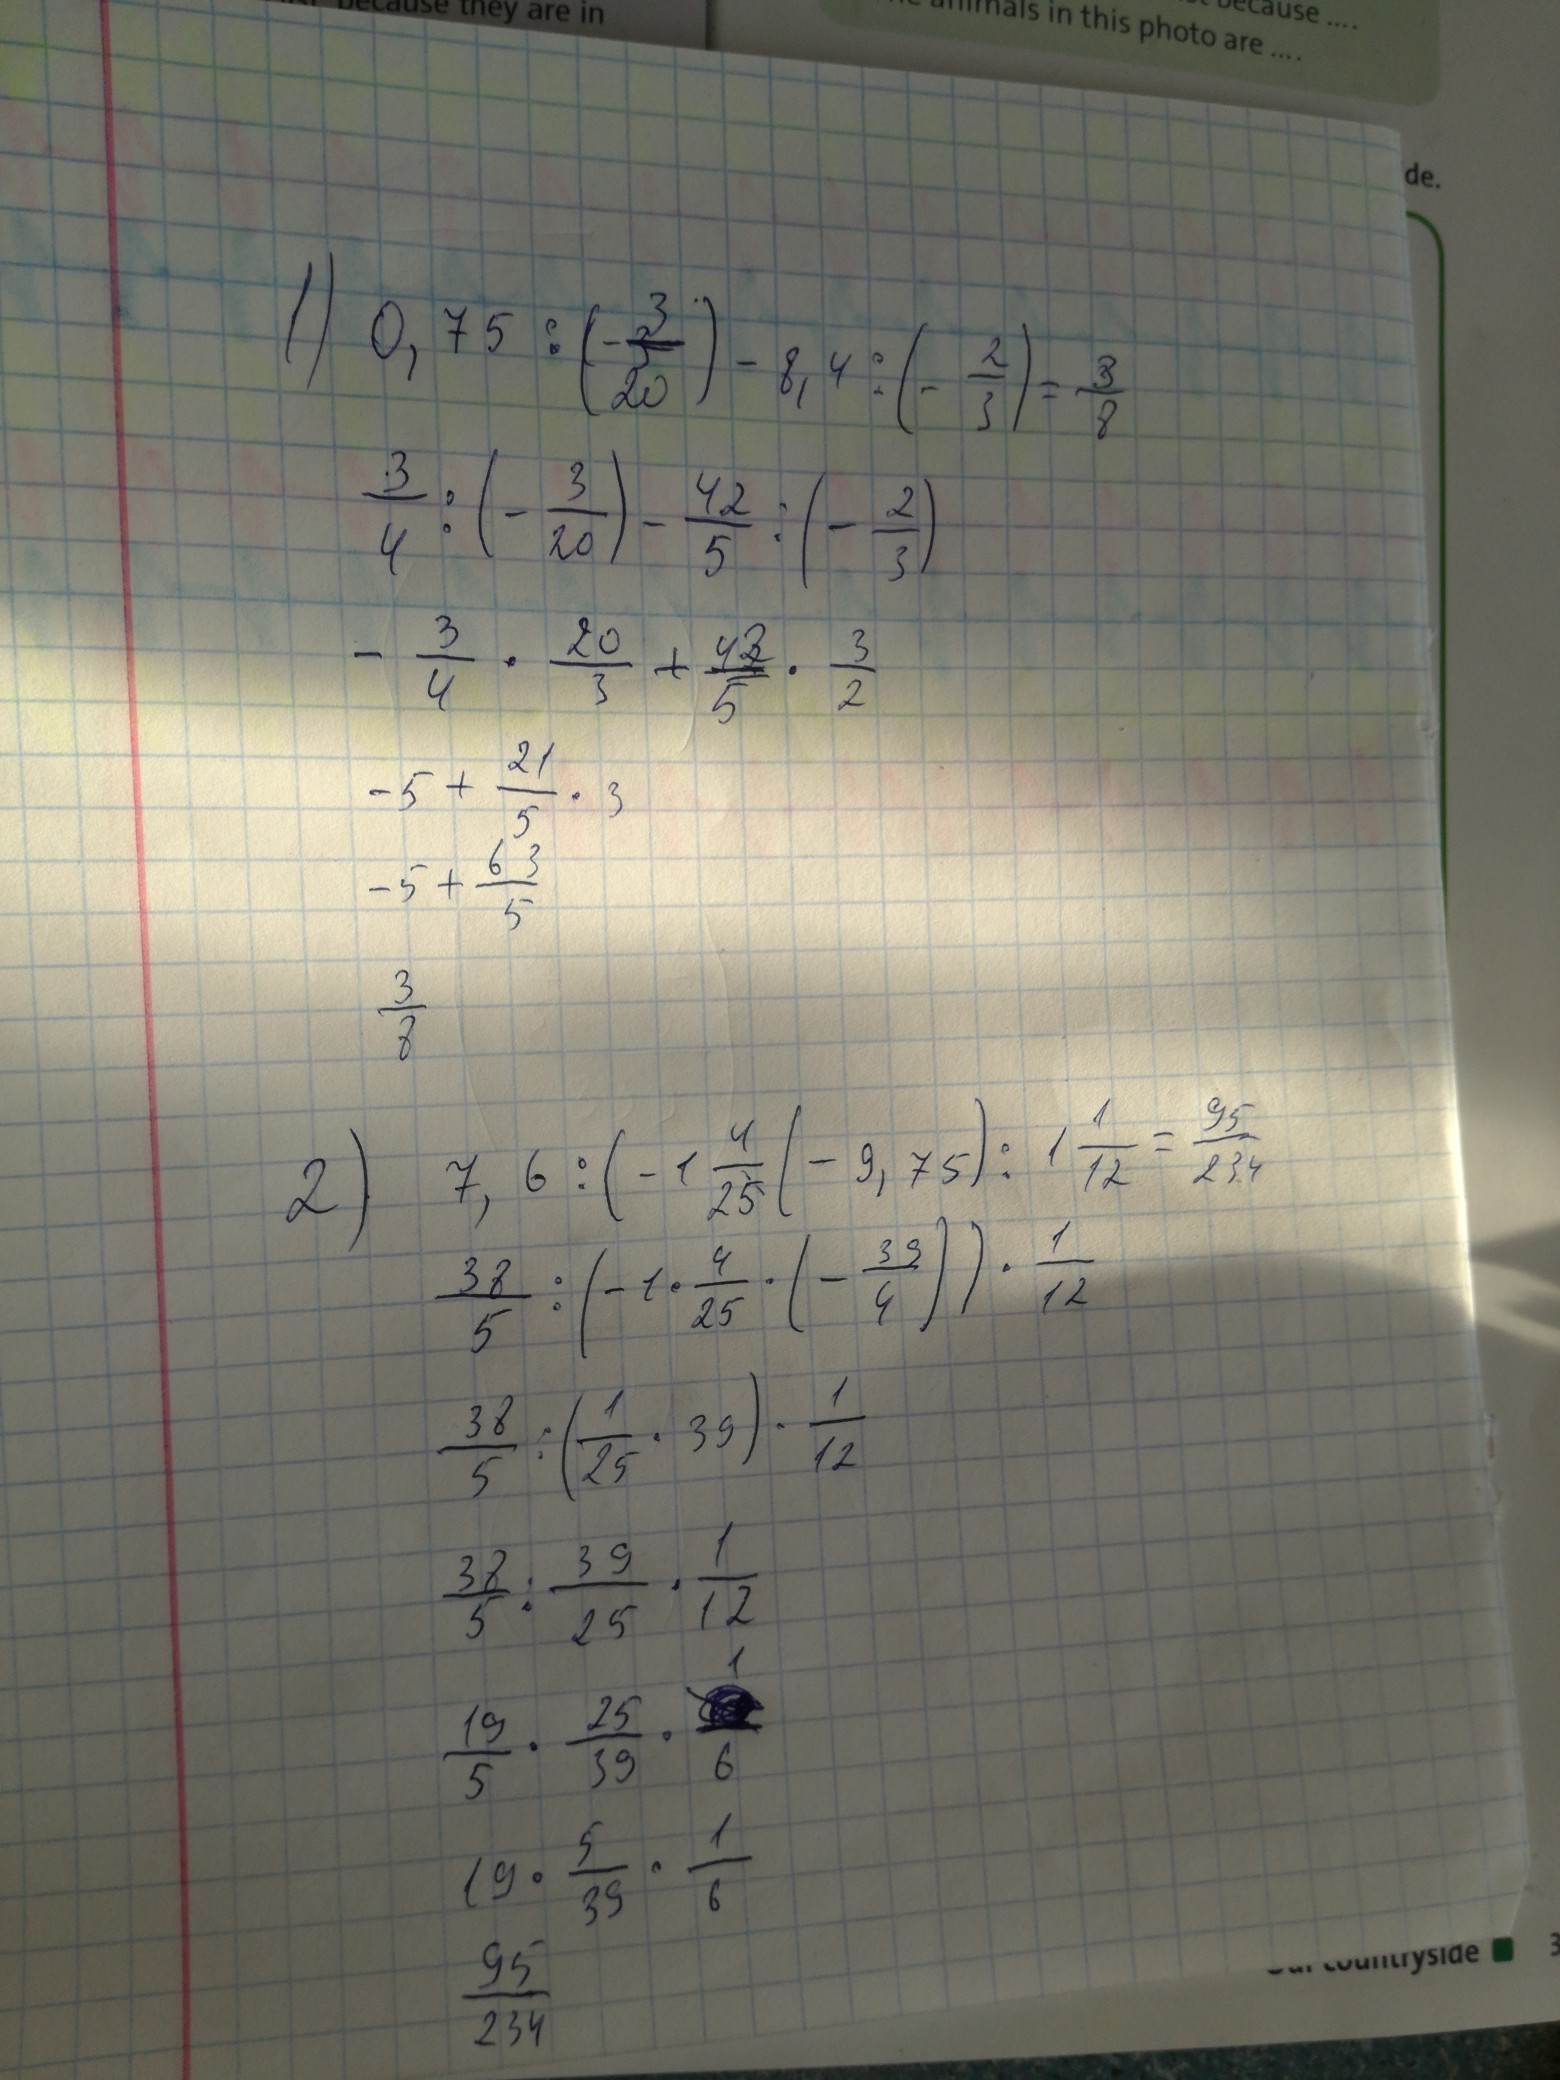 because they are in
because ....
animals in this photo are ....
de.
1) 0,75 : (-3/20) - 8,4 : (-2/3) = 3/8
3/4 : (-3/20) - 42/5 : (-2/3)
- 3/4 · 20/3 + 42/5 · 3/2
-5 + 21/5 · 3
-5 + 63/5
3/8
2) 7,6 : (-1 4/25 (-9,75) : 1 1/12 = 95/234
38/5 : (-1 · 4/25 · (-39/4)) · 1/12
38/5 : (1/25 · 39) · 1/12
38/5 : 39/25 · 1/12
19/5 · 25/39 · 1/6
19 · 5/39 · 1/6
95/234
Our countryside 3